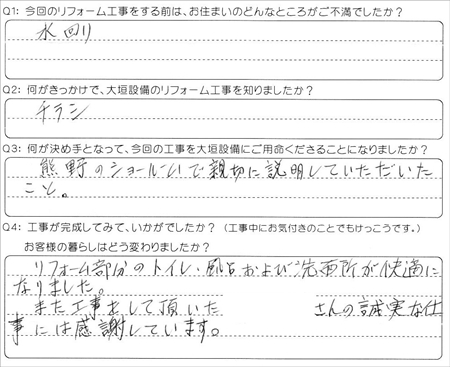 Q1: 今回のリフォーム工事をする前は、お住まいのどんなところがご不満でしたか？
水回り
Q2: 何がきっかけで、大垣設備のリフォーム工事を知りましたか？
チラシ
Q3: 何が決め手となって、今回の工事を大垣設備にご用命くださることになりましたか？
熊野のショールームで親切に説明していただいた
こと。
Q4: 工事が完成してみて、いかがでしたか？（工事中にお気付きのことでもけっこうです。）
お客様の暮らしはどう変わりましたか？
リフォーム部分のトイレ、風呂および洗面所が快適に
なりました。
また工事をして頂いた さんの誠実な仕
事には感謝しています。